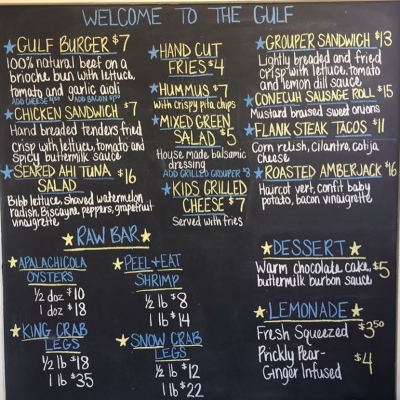 WELCOME TO THE GULF
★GULF BURGER $7
100% natural beef on a
brioche bun with lettuce,
tomato and garlic aioli
ADD CHEESE ADD BACON
★CHICKEN SANDWICH $7
Hand breaded tenders fried
crisp with lettuce, tomato and
spicy buttermilk sauce
★SEARED AHI TUNA
SALAD $16
Bibb lettuce, shaved watermelon
radish, Biscayne peppers, grapefruit
vinaigrette
★HAND CUT
FRIES $4
★HUMMUS $7
with crispy pita chips
★MIXED GREEN
SALAD $5
House made balsamic
dressing
ADD GRILLED GROUPER $8
★KIDS GRILLED
CHEESE $7
Served with fries
★GROUPER SANDWICH $13
Lightly breaded and fried
crisp with lettuce, tomato
and lemon dill sauce
★CONECUH SAUSAGE ROLL $15
Mustard braised sweet onions
★FLANK STEAK TACOS $11
Corn relish, cilantro, cotija
cheese
★ROASTED AMBERJACK $16
Haircot vert, confit baby
potato, bacon vinaigrette
★RAW BAR★
★APALACHICOLA
OYSTERS
½ doz $10
1 doz $18
★KING CRAB
LEGS
½ lb $18
1 lb $35
★PEEL+EAT
SHRIMP
½ lb $8
1 lb $14
★SNOW CRAB
LEGS
½ lb $12
1 lb $22
★DESSERT★
Warm chocolate cake, $5
buttermilk burbon sauce
★LEMONADE★
Fresh Squeezed $3.50
Prickly Pear-
Ginger Infused $4